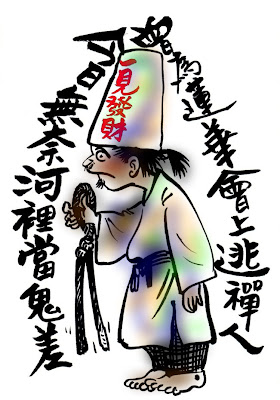 曾為蓮華會上逃禪人
今日無奈河裡當鬼差
一見發財